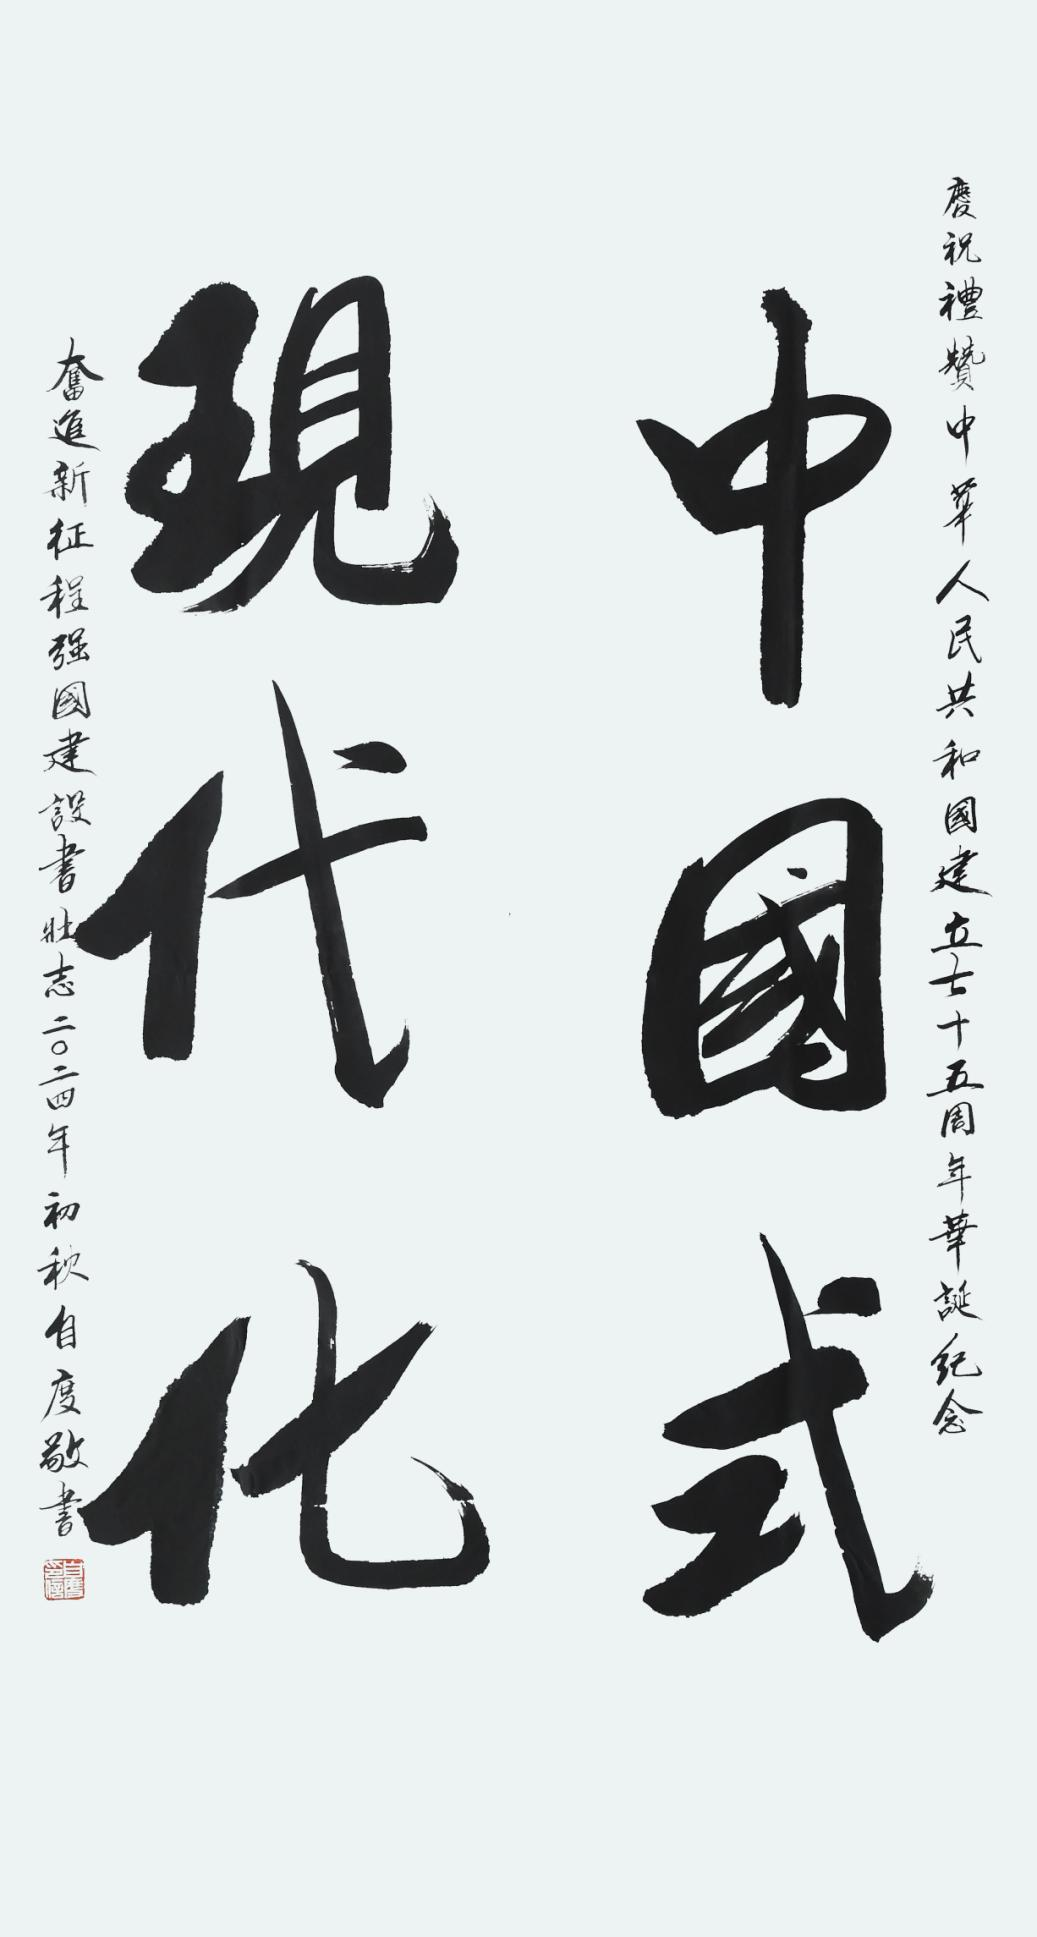 慶祝禮贊中華人民共和國建立七十五周年華誕紀念
中國式
現代化
奮進新征程强國建設書壯志二〇二四年初秋自度敬書